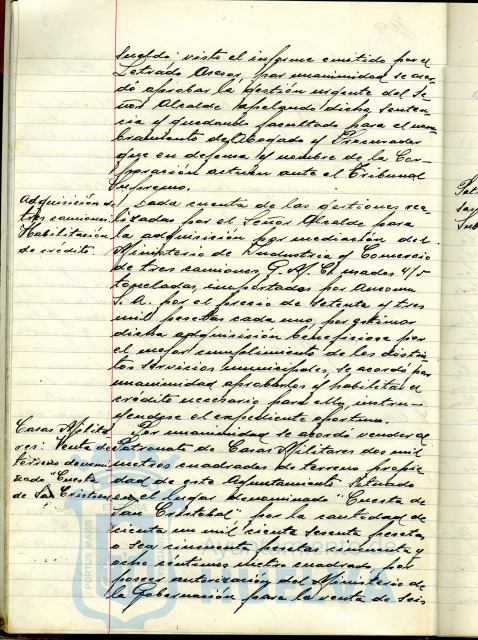 sueldo: visto el informe emitido por el
Letrado Asesor, por unanimidad se acor-
dó aprobar la gestión urgente del Se-
ñor Alcalde apelando dicha senten-
cia y quedando facultado para el nom-
bramiento de Abogado y Procurador
que en defensa y nombre de la Cor-
poración actuen ante el Tribunal
Supremo.
Adquisición de
tres camiones:
Habilitación
de crédito.
Dada cuenta de las gestiones rea-
lizadas por el Señor Alcalde para
la adquisición por mediación del
Ministerio de Industria y Comercio
de tres camiones G. M. C. usados 4/5
toneladas, importados por
S. A. por el precio de setenta y tres
mil pesetas cada uno, por estimar
dicha adquisición beneficiosa por
el mejor cumplimiento de los distin-
tos servicios municipales, se acordó por
unanimidad aprobarlos y habilitar el
crédito necesario para ello, instru-
yendose el expediente oportuno.
Casas Milita
res: Venta de
terreno denomi
nado "Cuesta
de San Cristobal
Por unanimidad se acordó vender al
Patronato de Casas Militares dos mil
metros cuadrados de terreno propie
dad de este Ayuntamiento situado
en el lugar denominado "Cuesta de
San Cristobal" por la cantidad de
ciento un mil ciento sesenta pesetas
o sea cincuenta pesetas cincuenta y
ocho centimos metro cuadrado por
poseer autorización del Ministerio de
la Gobernación para la venta de seis
PORTUS MARIS